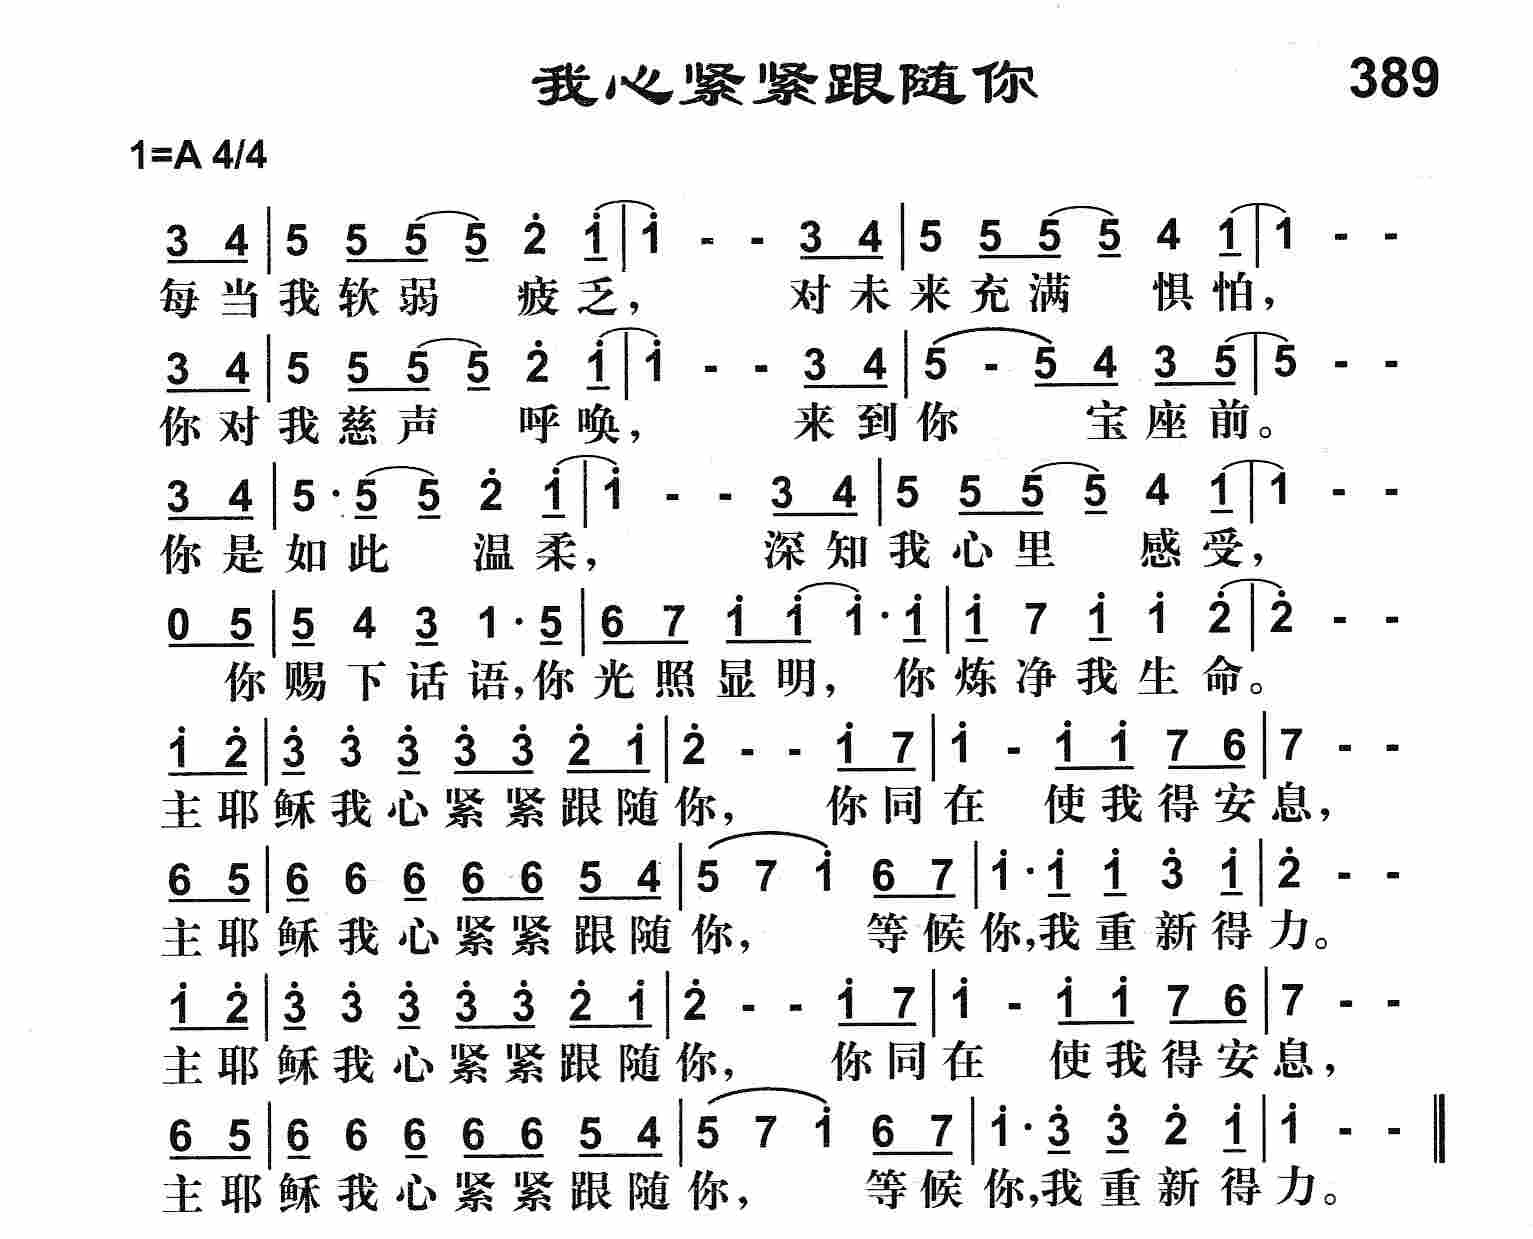 我心紧紧跟随你 389
1=A 4/4
3 4 | 5 5 5 5 2 1 | 1 - - 3 4 | 5 5 5 5 4 1 | 1 - -
每当我软弱 疲乏， 对未来充满 惧怕，
3 4 | 5 5 5 5 2 1 | 1 - - 3 4 | 5 - 5 4 3 5 | 5 - -
你对我慈声 呼唤， 来到你 宝座前。
3 4 | 5 · 5 5 2 1 | 1 - - 3 4 | 5 5 5 5 4 1 | 1 - -
你是如此 温柔， 深知我心里 感受，
0 5 | 5 4 3 1 · 5 | 6 7 1 1 1 · 1 | 1 7 1 1 2 | 2 - -
你赐下话语,你光照显明， 你炼净我生命。
1 2 | 3 3 3 3 3 2 1 | 2 - - 1 7 | 1 - 1 1 7 6 | 7 - -
主耶稣我心紧紧跟随你， 你同在 使我得安息，
6 5 | 6 6 6 6 6 5 4 | 5 7 1 6 7 | 1 · 1 1 3 1 | 2 - -
主耶稣我心紧紧跟随你， 等候你,我重新得力。
1 2 | 3 3 3 3 3 2 1 | 2 - - 1 7 | 1 - 1 1 7 6 | 7 - -
主耶稣我心紧紧跟随你， 你同在 使我得安息，
6 5 | 6 6 6 6 6 5 4 | 5 7 1 6 7 | 1 · 3 3 2 1 | 1 - - ‖
主耶稣我心紧紧跟随你， 等候你,我重新得力。